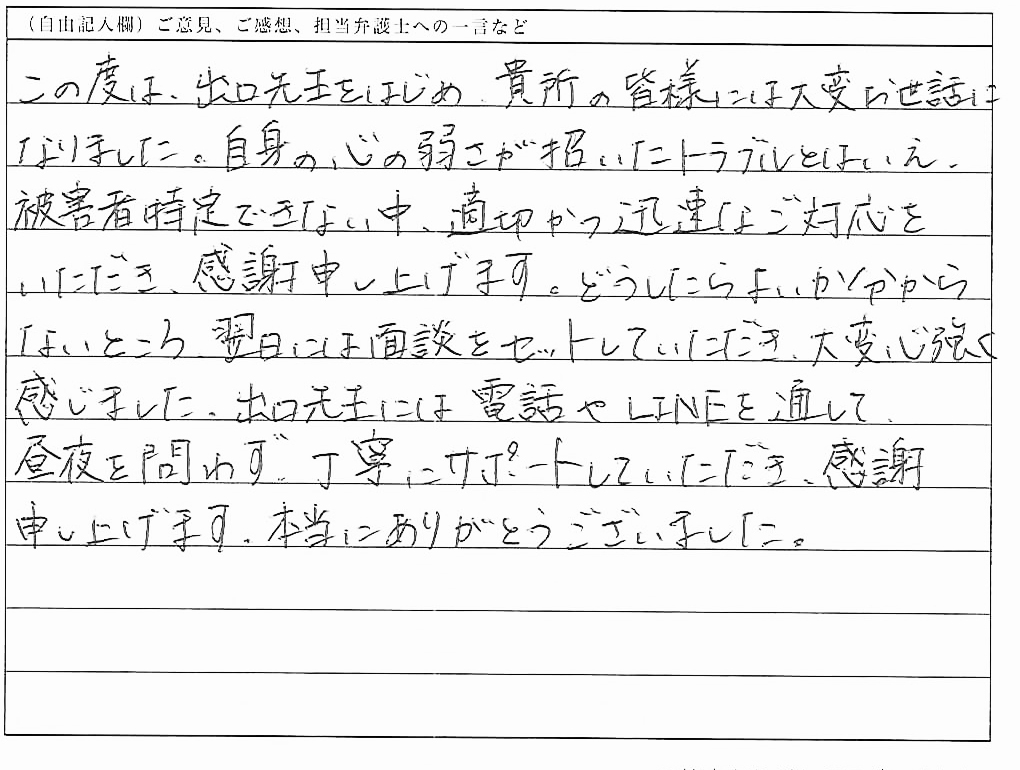 （自由記入欄）ご意見、ご感想、担当弁護士への一言など
この度は、出口先生をはじめ、貴所の皆様には大変お世話に
なりました。自身の心の弱さが招いたトラブルとはいえ、
被害者特定できない中、適切かつ迅速なご対応を
いただき、感謝申し上げます。どうしたらよいか分から
ないところ、翌日には面談をセットしていただき、大変心強く
感じました。出口先生には電話やLINEを通して、
昼夜を問わず、丁寧にサポートしていただき、感謝
申し上げます。本当にありがとうございました。